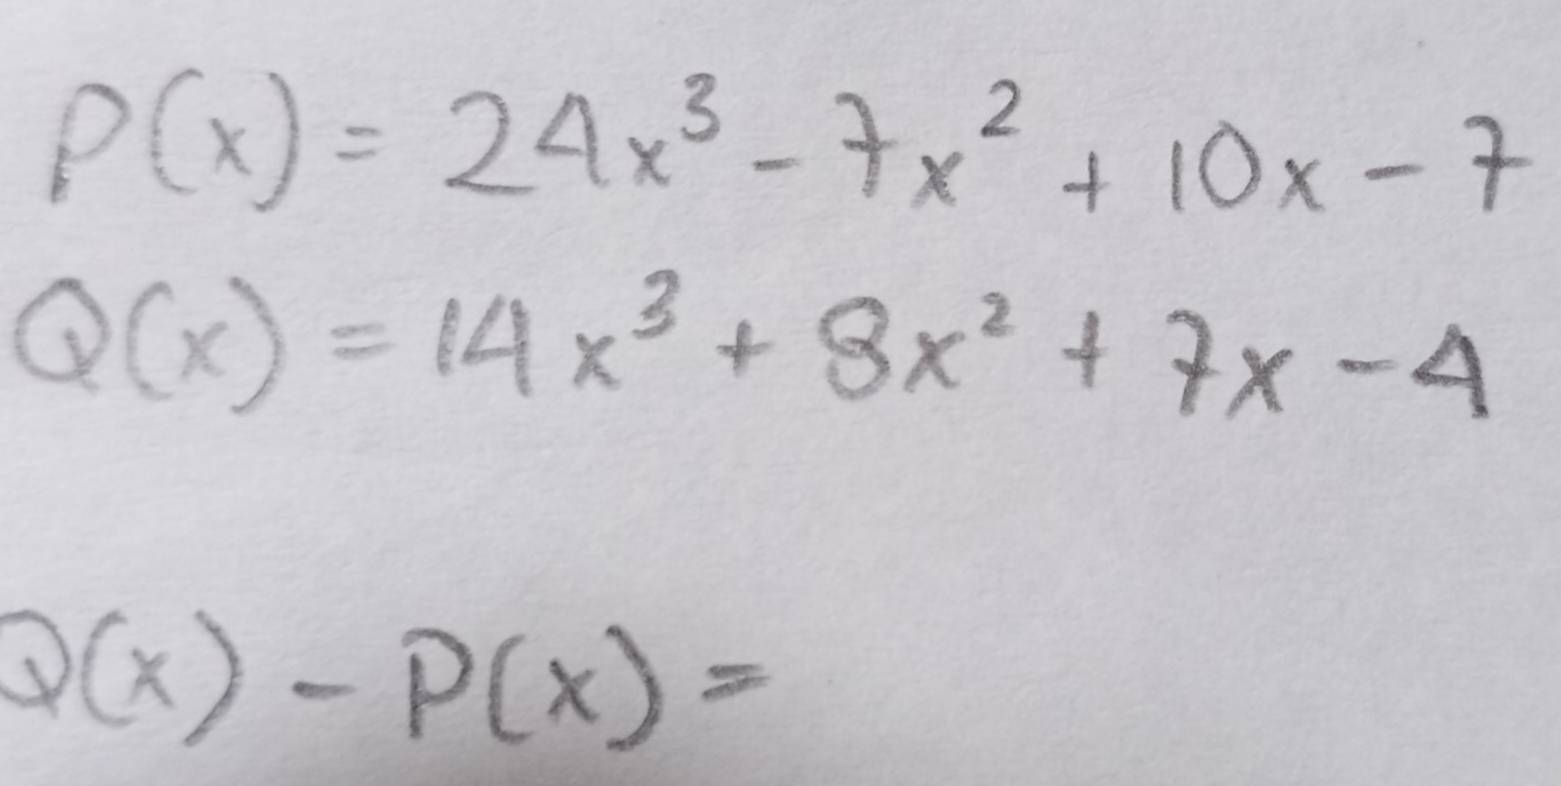 P(x) = 24x³ - 7x² + 10x - 7
Q(x) = 14x³ + 8x² + 7x - 4
Q(x) - P(x) =